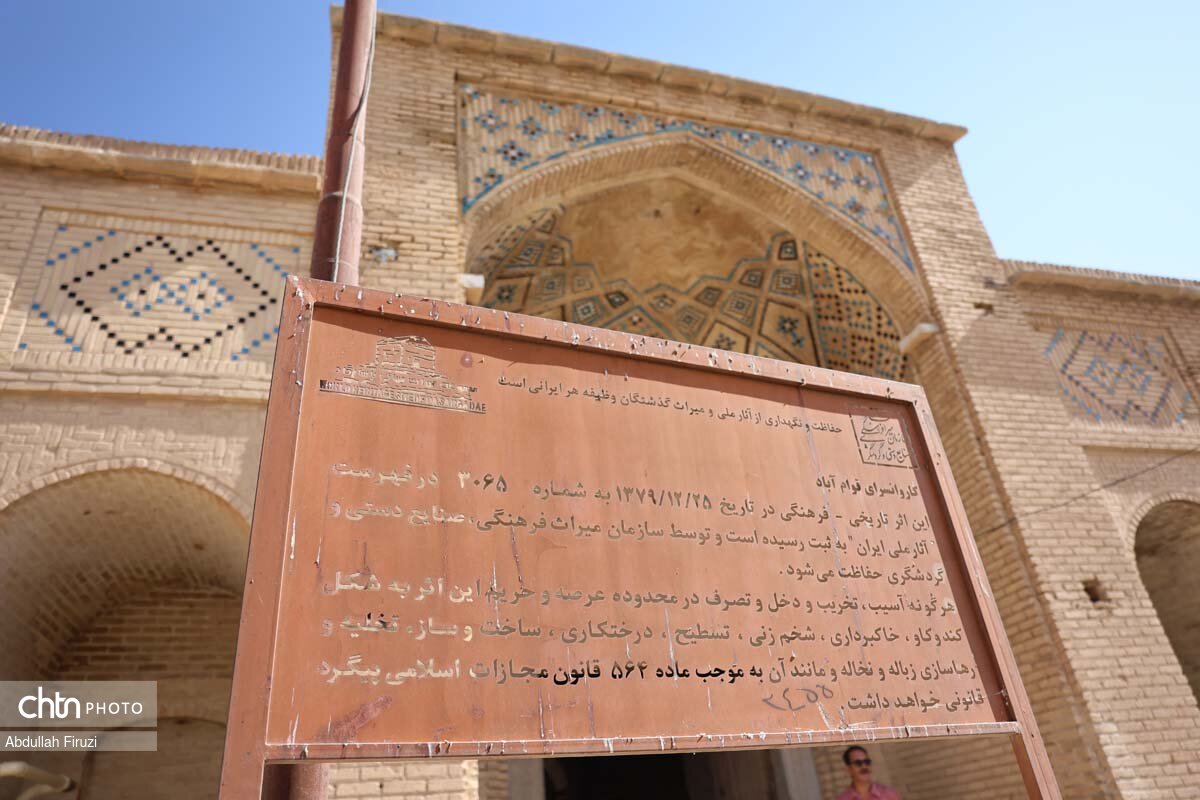 حفاظت و نگهداری از آثار ملی و میراث گذشتگان وظیفه هر ایرانی است
WORLD HERITAGE SITE OF PASARGADAE
کاروانسرای قوام آباد
این اثر تاریخی - فرهنگی در تاریخ ۱۳۷۹/۱۲/۲۵ به شماره ۳۰۶۵ در فهرست
"آثار ملی ایران" به ثبت رسیده است و توسط سازمان میراث فرهنگی، صنایع دستی و
گردشگری حفاظت می‌شود.
هرگونه آسیب، تخریب و دخل و تصرف در محدوده عرصه و حریم این اثر به شکل
کندوکاو، خاکبرداری، شخم زنی، تسطیح، درختکاری، ساخت و ساز، تخلیه و
رهاسازی زباله و نخاله و مانند آن به موجب ماده ۵۶۴ قانون مجازات اسلامی پیگرد
قانونی خواهد داشت.
chtn PHOTO
Abdullah Firuzi